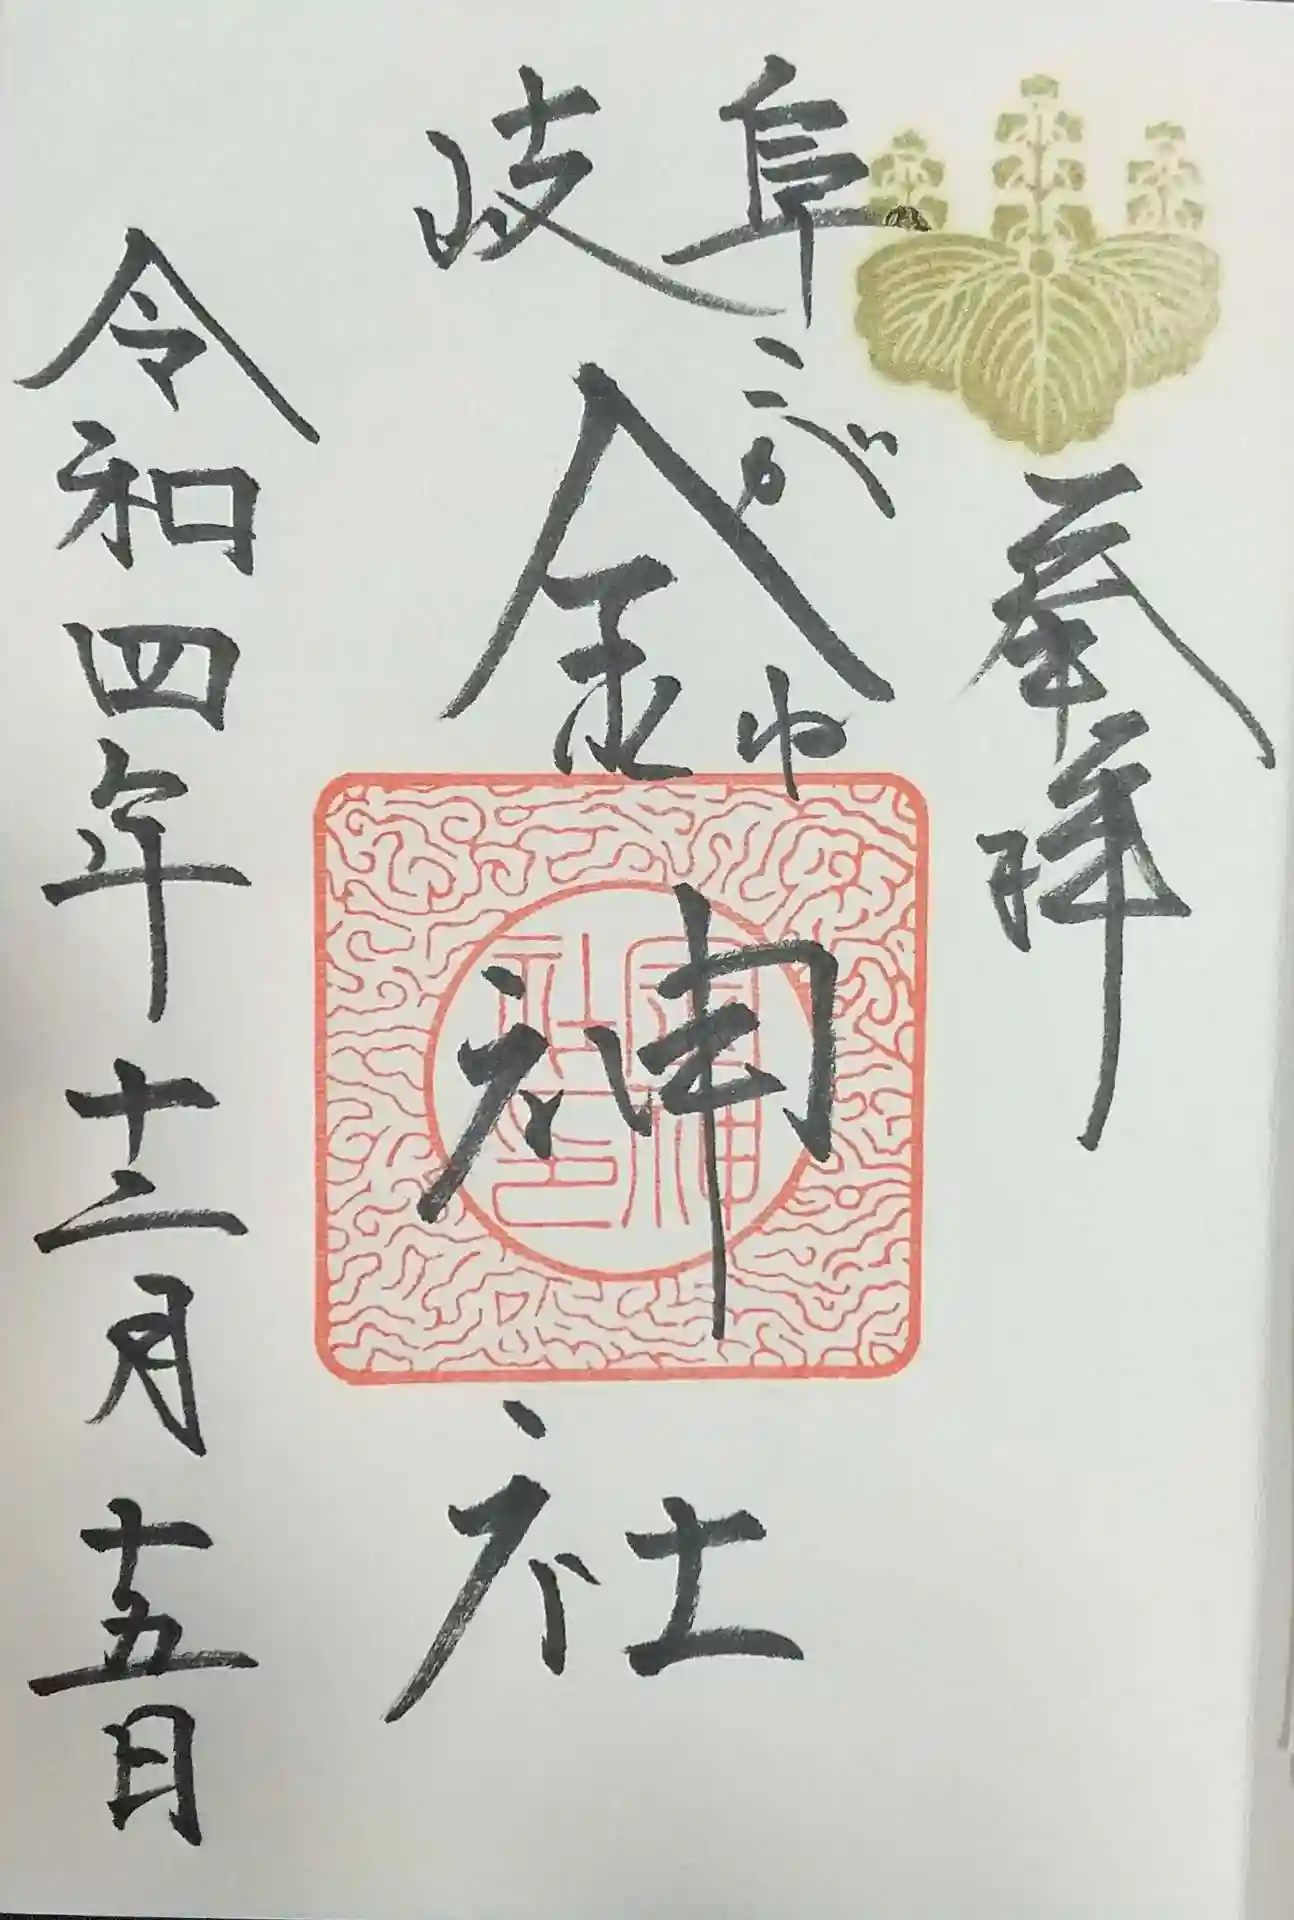 奉拝
岐阜
こがね
金神社
令和四年十二月十五日